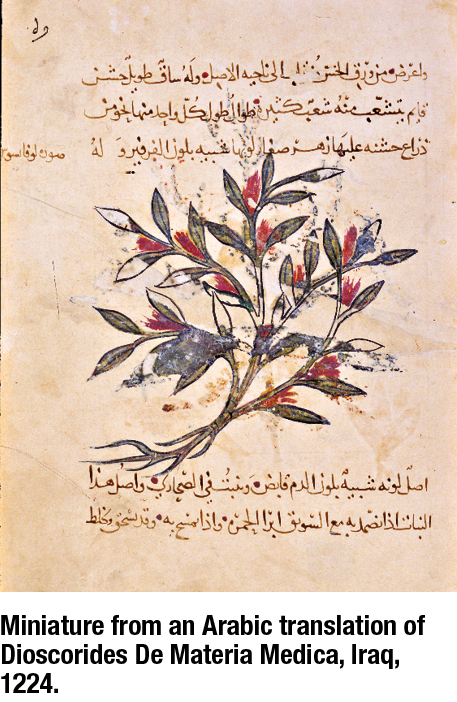 واعرض من ورق الخس الى ناحيه الاصل وله ساق طويل خشن
قايم يتشعب منه شعب كثيرة طوال طول كل واحد منها نحو من
ذراع خشنه عليها زهر صغار لونها شبيه بلون الفرفير وله
اصل لونه شبيه بلون الدم قابض وينبت في الصحاري واصل هذا
النبات اذا تضمد به مع السويق ابرا الحمرة واذا تمسح به وقد سحق وخلط
Miniature from an Arabic translation of
Dioscorides De Materia Medica, Iraq,
1224.